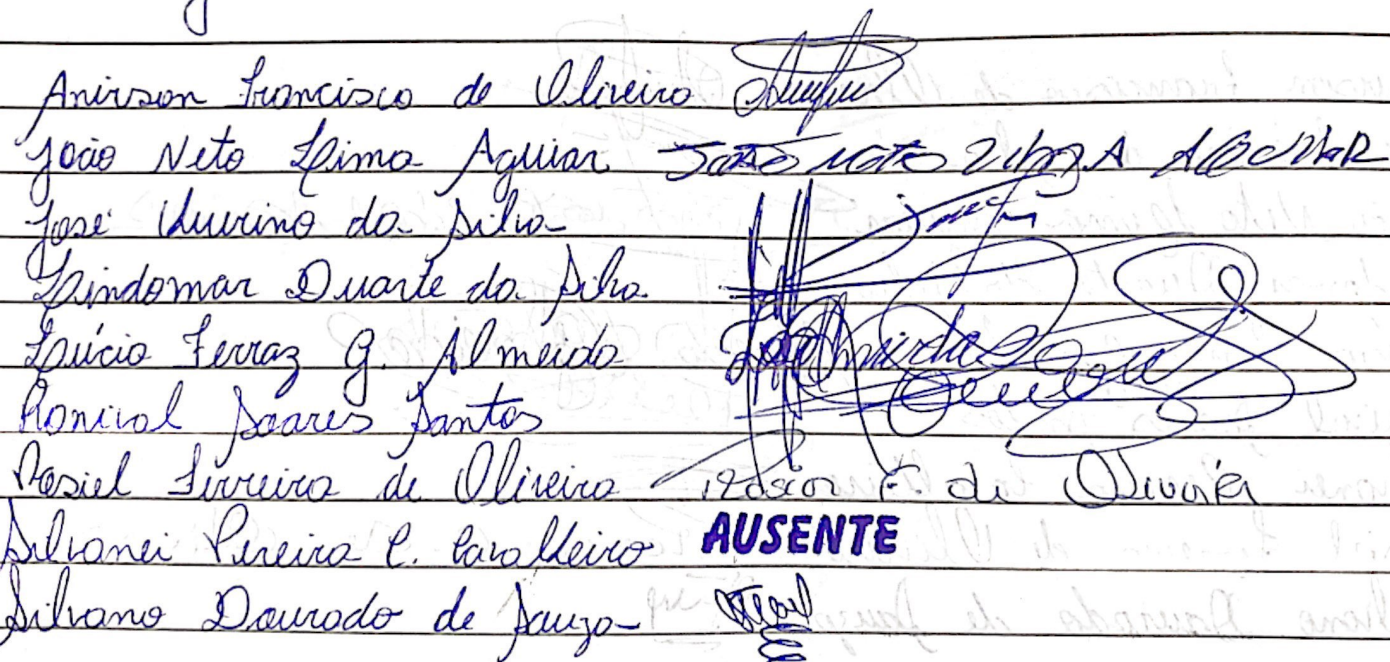 Anirson Francisco de Oliveira
João Neto Lima Aguiar JOÃO NETO LIMA AGUIAR
José Quirino da Silva
Lindomar Duarte da Silva
Lúcio Ferraz G. Almeida
Ronival Soares Santos
Rosiel Ferreira de Oliveira F. de Oliveira
Silvanei Pereira C. Cavalheiro AUSENTE
Silvano Dourado de Souza